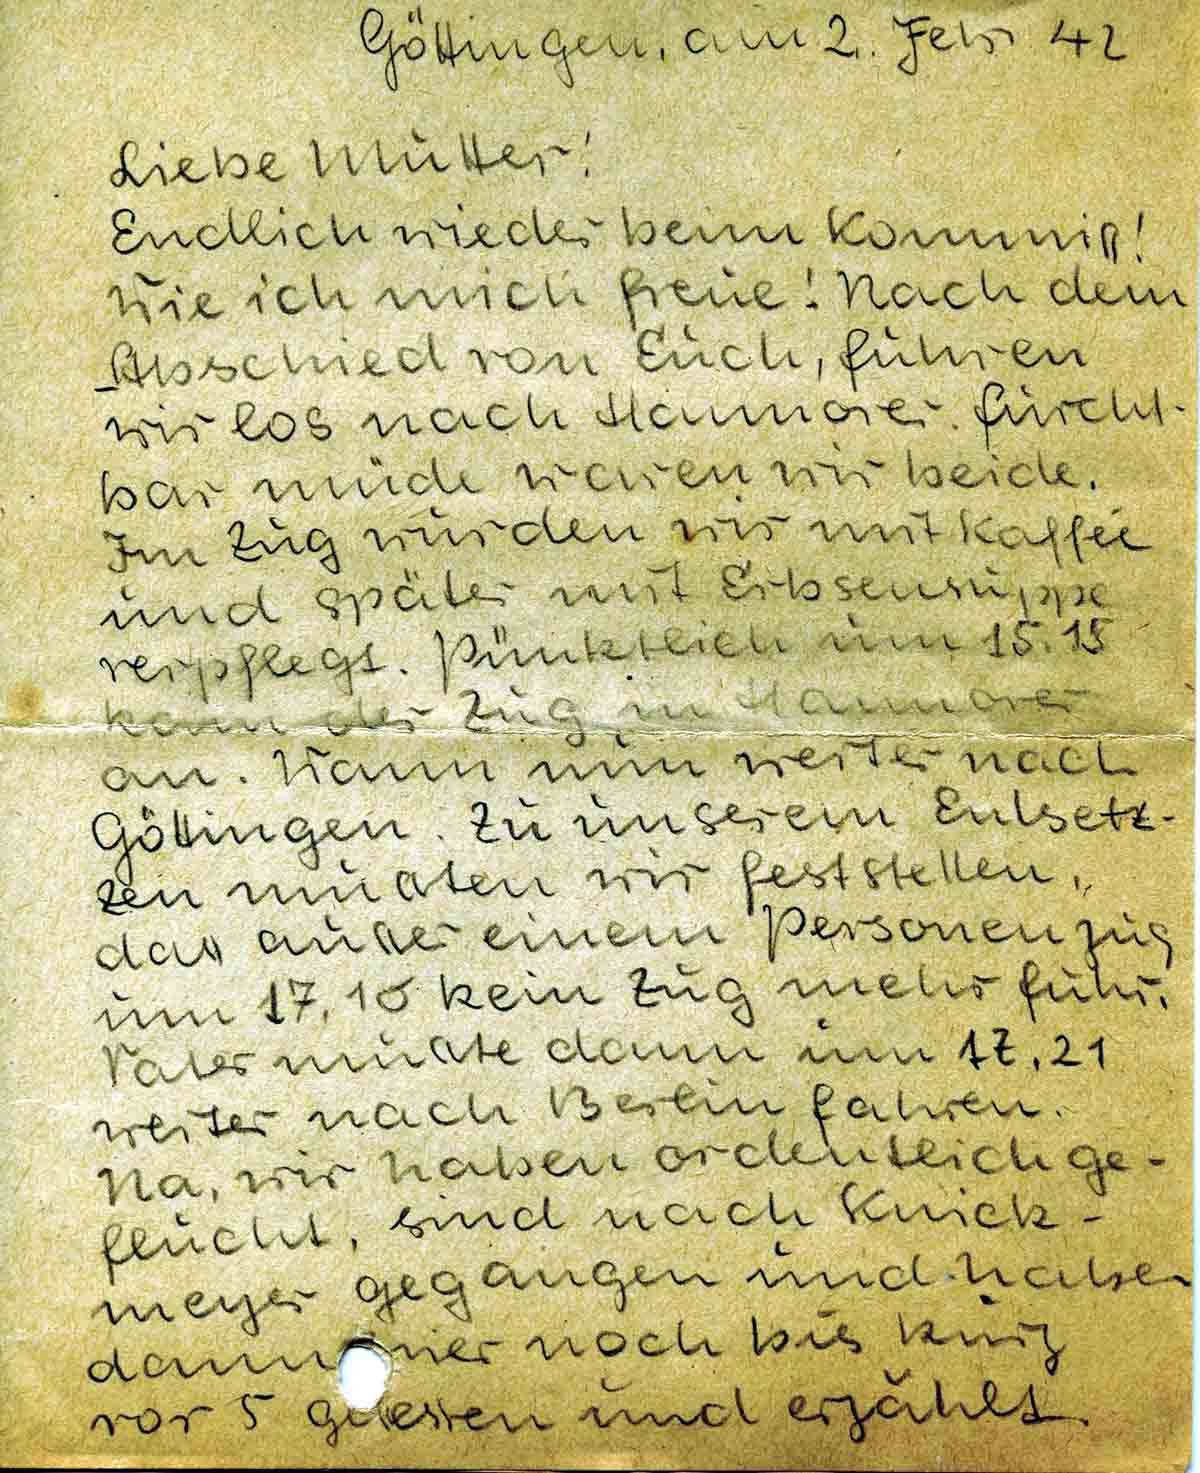 Göttingen, am 2. Febr 42
Liebe Mutter!
Endlich wieder beim Kommiß!
Wie ich mich freue! Nach dem
Abschied von Euch, fuhren
wir los nach Hannover. Furcht-
bar müde waren wir beide.
Im Zug wurden wir mit Kaffee
und später mit Erbsensuppe
verpflegt. Pünktlich um 15.15
kam der Zug in Hannover
an. Wann nun weiter nach
Göttingen. Zu unserem Entsetz-
zen mußten wir feststellen,
daß außer einem Personenzug
um 17,10 kein Zug mehr fuhr.
Vater mußte dann um 17,21
weiter nach Berlin fahren.
Na, wir haben ordentlich ge-
flucht, sind nach Knick-
meyer gegangen und haben
dann hier noch bis kurz
vor 5 gesessen und erzählt.